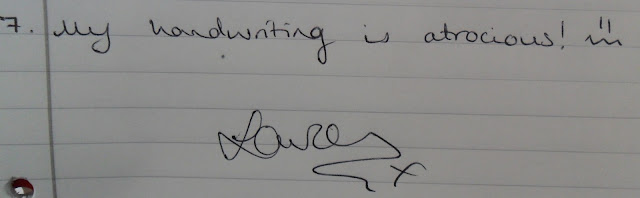 7. My handwriting is atrocious!
x